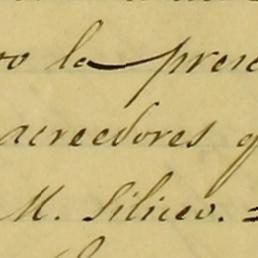 la
acreedores
M. Siliceo.